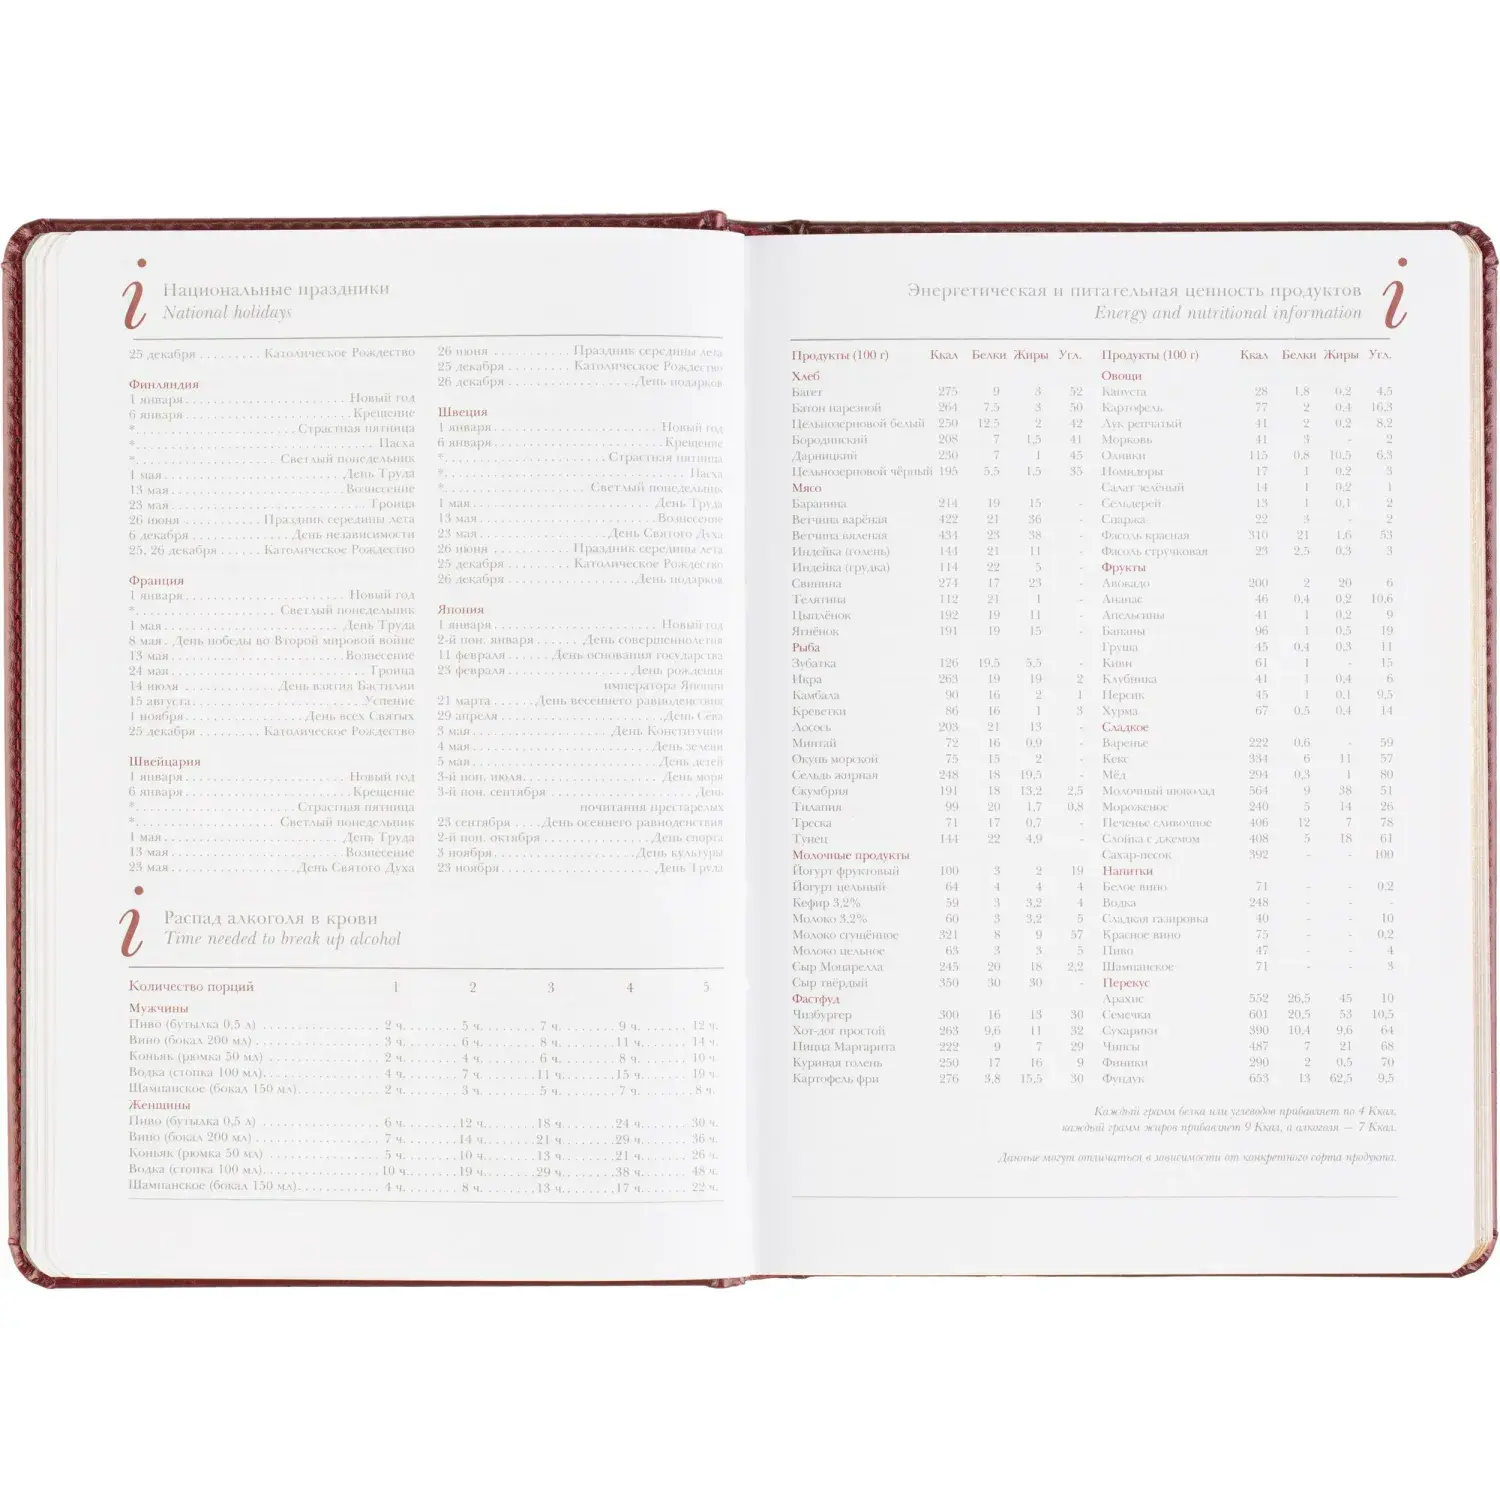 i Национальные праздники
National holidays
25 декабря ......... Католическое Рождество
Финляндия
1 января ........................ Новый год
6 января ......................... Крещение
* ....................... Страстная пятница
* .................................... Пасха
* ..................... Светлый понедельник
1 мая ......................... День Труда
13 мая .......................... Вознесение
23 мая ............................. Троица
26 июня ........... Праздник середины лета
6 декабря ............... День независимости
25, 26 декабря ...... Католическое Рождество
Франция
1 января ........................ Новый год
* ..................... Светлый понедельник
1 мая ......................... День Труда
8 мая . День победы во Второй мировой войне
13 мая .......................... Вознесение
24 мая ............................. Троица
14 июля .............. День взятия Бастилии
15 августа ......................... Успение
1 ноября ................. День всех Святых
25 декабря ......... Католическое Рождество
Швейцария
1 января ........................ Новый год
6 января ......................... Крещение
* ....................... Страстная пятница
* ..................... Светлый понедельник
1 мая ......................... День Труда
13 мая .......................... Вознесение
23 мая ................... День Святого Духа
26 июня ........... Праздник середины лета
25 декабря ......... Католическое Рождество
26 декабря .................. День подарков
Швеция
1 января ........................ Новый год
6 января ......................... Крещение
* ....................... Страстная пятница
* .................................... Пасха
* ..................... Светлый понедельник
1 мая ......................... День Труда
13 мая .......................... Вознесение
23 мая ................... День Святого Духа
26 июня ........... Праздник середины лета
25 декабря ......... Католическое Рождество
26 декабря .................. День подарков
Япония
1 января ........................ Новый год
2-й пон. января ...... День совершеннолетия
11 февраля ...... День основания государства
23 февраля .................. День рождения
императора Японии
21 марта ...... День весеннего равноденствия
29 апреля ....................... День Сёва
3 мая .................... День Конституции
4 мая ......................... День зелени
5 мая .......................... День детей
3-й пон. июля .................... День моря
3-й пон. сентября ..................... День
почитания престарелых
23 сентября .... День осеннего равноденствия
2-й пон. октября ............... День спорта
3 ноября ..................... День культуры
23 ноября ...................... День Труда
i Распад алкоголя в крови
Time needed to break up alcohol
Количество порций 1 2 3 4 5
Мужчины
Пиво (бутылка 0,5 л) 2 ч. 5 ч. 7 ч. 9 ч. 12 ч.
Вино (бокал 200 мл) 3 ч. 6 ч. 8 ч. 11 ч. 14 ч.
Коньяк (рюмка 50 мл) 2 ч. 4 ч. 6 ч. 8 ч. 10 ч.
Водка (стопка 100 мл) 4 ч. 7 ч. 11 ч. 15 ч. 19 ч.
Шампанское (бокал 150 мл) 2 ч. 3 ч. 5 ч. 7 ч. 8 ч.
Женщины
Пиво (бутылка 0,5 л) 6 ч. 12 ч. 18 ч. 24 ч. 30 ч.
Вино (бокал 200 мл) 7 ч. 14 ч. 21 ч. 29 ч. 36 ч.
Коньяк (рюмка 50 мл) 5 ч. 10 ч. 13 ч. 21 ч. 26 ч.
Водка (стопка 100 мл) 10 ч. 19 ч. 29 ч. 38 ч. 48 ч.
Шампанское (бокал 150 мл) 4 ч. 8 ч. 13 ч. 17 ч. 22 ч.
Энергетическая и питательная ценность продуктов i
Energy and nutritional information
Продукты (100 г) Ккал Белки Жиры Угл.
Хлеб
Багет 275 9 3 52
Батон нарезной 264 7.5 3 50
Цельнозерновой белый 250 12.5 2 42
Бородинский 208 7 1,5 41
Дарницкий 230 7 1 45
Цельнозерновой чёрный 195 5.5 1,5 35
Мясо
Баранина 214 19 15 -
Ветчина варёная 422 21 36 -
Ветчина вяленая 434 23 38 -
Индейка (голень) 144 21 11 -
Индейка (грудка) 114 22 5 -
Свинина 274 17 23 -
Телятина 112 21 1 -
Цыплёнок 192 19 11 -
Ягнёнок 191 19 15 -
Рыба
Зубатка 126 19,5 5,5 -
Икра 263 19 19 2
Камбала 90 16 2 1
Креветки 86 16 1 3
Лосось 203 21 13 -
Минтай 72 16 0,9 -
Окунь морской 75 15 2 -
Сельдь жирная 248 18 19,5 -
Скумбрия 191 18 13,2 2,5
Тилапия 99 20 1,7 0,8
Треска 71 17 0,7 -
Тунец 144 22 4,9 -
Молочные продукты
Йогурт фруктовый 100 3 2 19
Йогурт цельный 64 4 4 4
Кефир 3,2% 59 3 3,2 4
Молоко 3,2% 60 3 3,2 5
Молоко сгущённое 321 8 9 57
Молоко цельное 63 3 3 5
Сыр Моцарелла 245 20 18 2,2
Сыр твёрдый 350 30 30 -
Фастфуд
Чизбургер 300 16 13 30
Хот-дог простой 263 9,6 11 32
Пицца Маргарита 222 9 7 29
Куриная голень 250 17 16 9
Картофель фри 276 3,8 15,5 30
Продукты (100 г) Ккал Белки Жиры Угл.
Овощи
Капуста 28 1,8 0,2 4,5
Картофель 77 2 0,4 16,3
Лук репчатый 41 2 0,2 8,2
Морковь 41 3 - 2
Оливки 115 0,8 10,5 6,3
Помидоры 17 1 0,2 3
Салат зелёный 14 1 0,2 1
Сельдерей 13 1 0,1 2
Спаржа 22 3 - 2
Фасоль красная 310 21 1,6 53
Фасоль стручковая 23 2,5 0,3 3
Фрукты
Авокадо 200 2 20 6
Ананас 46 0,4 0,2 10,6
Апельсины 41 1 0,2 9
Бананы 96 1 0,5 19
Груша 45 0,4 0,3 11
Киви 61 1 - 15
Клубника 41 1 0,4 6
Персик 45 1 0,1 9,5
Хурма 67 0,5 0,4 14
Сладкое
Варенье 222 0,6 - 59
Кекс 334 6 11 57
Мёд 294 0,3 1 80
Молочный шоколад 564 9 38 51
Мороженое 240 5 14 26
Печенье сливочное 406 12 7 78
Слойка с джемом 408 5 18 61
Сахар-песок 392 - - 100
Напитки
Белое вино 71 - - 0,2
Водка 248 - - -
Сладкая газировка 40 - - 10
Красное вино 75 - - 0,2
Пиво 47 - - 4
Шампанское 71 - - 3
Перекус
Арахис 552 26,5 45 10
Семечки 601 20,5 53 10,5
Сухарики 390 10,4 9,6 64
Чипсы 487 7 21 68
Финики 290 2 0,5 70
Фундук 653 13 62,5 9,5
Каждый грамм белка или углеводов прибавляет по 4 Ккал,
каждый грамм жиров прибавляет 9 Ккал, а алкоголя — 7 Ккал.
Данные могут отличаться в зависимости от конкретного сорта продукта.